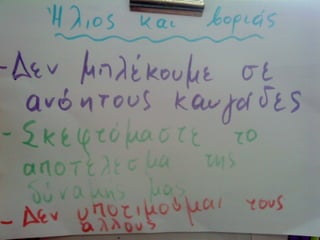 Ήλιος και βοριάς
- Δεν μπλέκουμε σε
ανόητους καυγάδες
- Σκεφτόμαστε το
αποτέλεσμα της
δύναμης μας
- Δεν υποτιμούμαι τους
άλλους